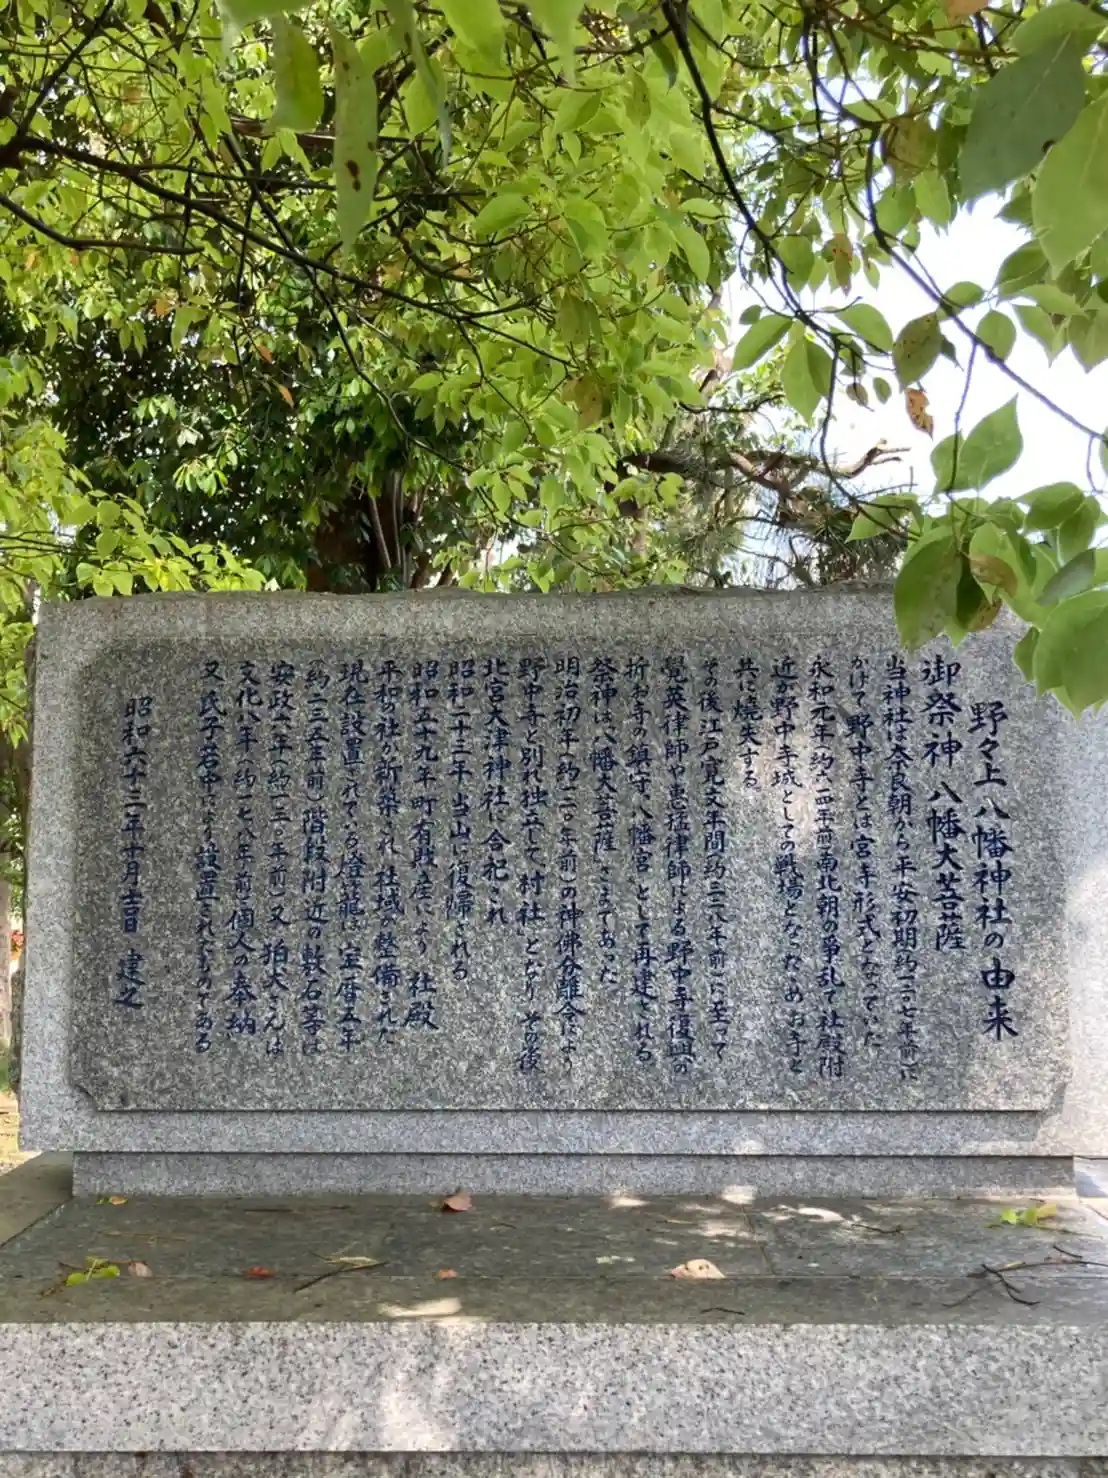 野々上八幡神社の由来
御祭神 八幡大菩薩
当神社は奈良朝から平安初期(約一二〇七年前)に
かけて野中寺とは宮寺形式となっていた
永和元年(約六一四年前)南北朝の争乱で社殿附
近が野中寺城としての戦場となったため お寺と
共に焼失する
その後江戸寛文年間(約三二八年前)に至って
覺英律師や恵猛律師による野中寺復興の
折お寺の鎮守"八幡宮"として再建される
祭神は"八幡大菩薩"さまであった
明治初年(約一二〇年前)の神佛分離令により
野中寺と別れ独立して"村社"となり その後
北宮大津神社に合祀され
昭和二十三年 当山に復帰される
昭和五十九年 町有財産により 社殿
平和の社が新築され 社域が整備された
現在設置されている燈籠は 宝暦五年
(約二三五年前)階段附近の敷石等は
安政六年(約一三〇年前)又 狛犬さんは
文化八年(約一七八年前)個人の奉納
又 氏子若中により設置されたものである
昭和六十三年十月吉日 建之